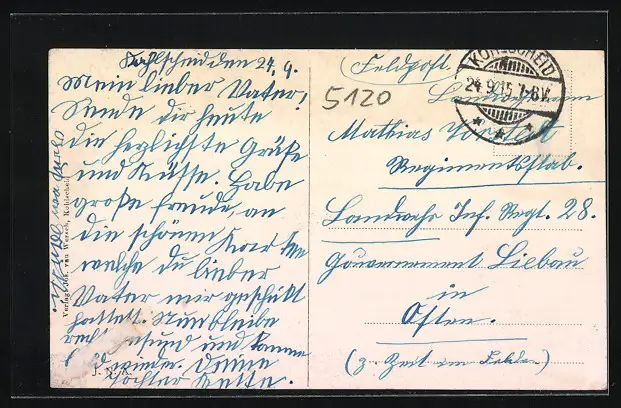 Kohlscheid den 24. 9.
Mein lieber Vater!
Sende dir heute
die herzlichste Grüße
und Küsse. Habe
große freude, an
die schönen Karten
welche du lieber
Vater mir geschickt
hattest. Nun bleibe
recht gesund und komme
bald wieder. Deine
Tochter
Verlag: Jos. van Wersch, Kohlscheid
5120
(Feldpost)
KOHLSCHEID
24.9.15.7-8V.
Landwehrmann
Mathias
Regimentsstab.
Landwehr Inf. Regt. 28.
Gouvernement Libau
in
Osten.
(z. Zeit im Felde)